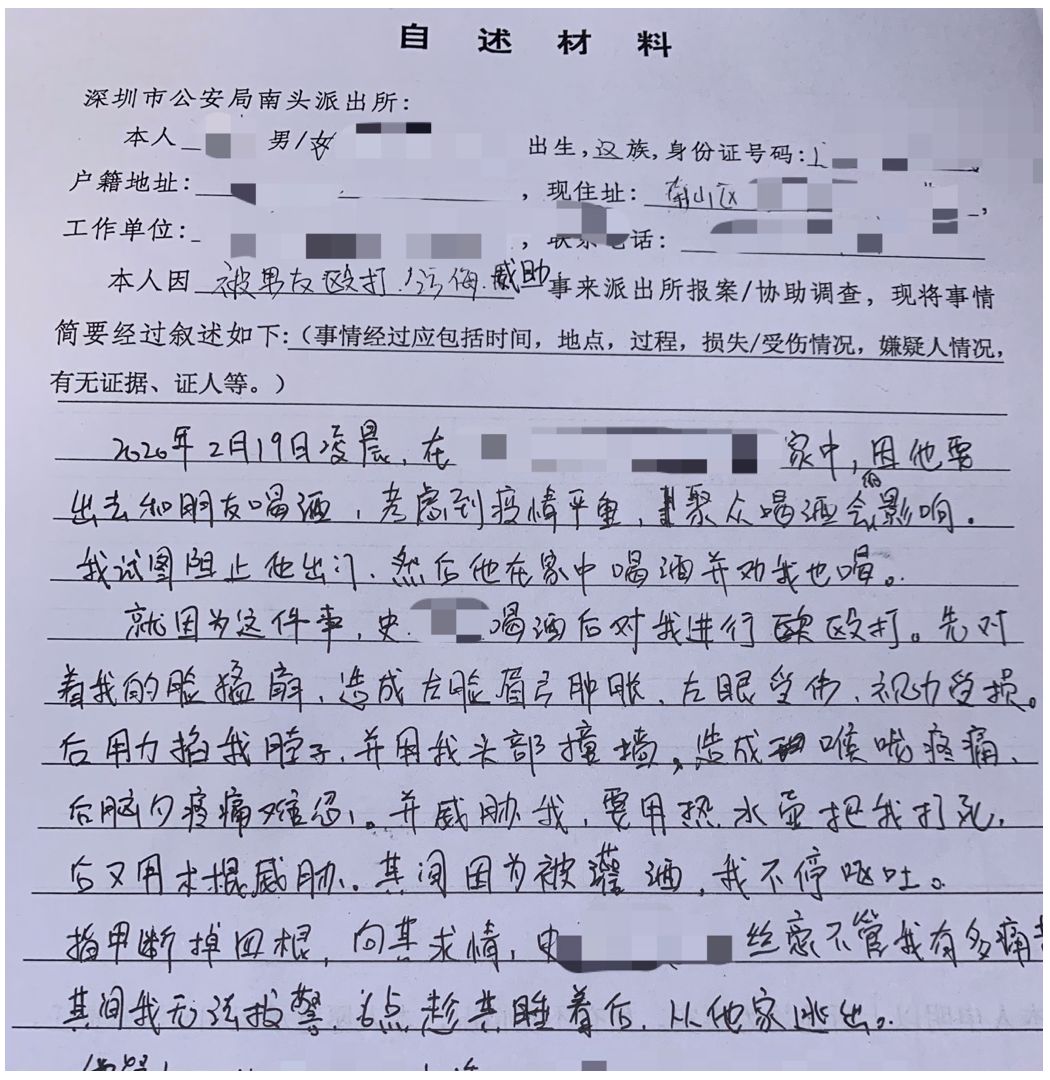 自述材料
深圳市公安局南头派出所：
本人 男/女 出生，汉族，身份证号码：
户籍地址： ，现住址：南山区 ，
工作单位： ，联系电话：
本人因 被男友殴打、污侮、威胁 事来派出所报案/协助调查，现将事情
简要经过叙述如下：（事情经过应包括时间，地点，过程，损失/受伤情况，嫌疑人情况，
有无证据、证人等。）
2020年2月19日凌晨，在 家中，因他要
出去和朋友喝酒，考虑到疫情严重，聚众喝酒会有影响。
我试图阻止他出门、然后他在家中喝酒并劝我也喝。
就因为这件事，史 喝酒后对我进行殴打。先对
着我的脸猛扇、造成左脸眉弓肿胀、左眼受伤、视力受损。
后用力掐我脖子、并用我头部撞墙，造成喉咙疼痛、
后脑勺疼痛难忍。并威胁我，要用热水壶把我打死，
后又用木棍威胁。其间因为被灌酒，我不停呕吐。
指甲断掉四根，向其求情，史 丝毫不管我有多痛苦
其间我无法报警，6点趁其睡着后，从他家逃出。